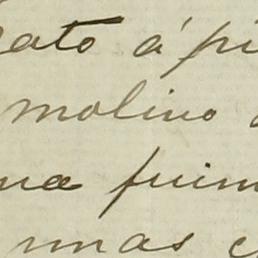 ato á pi
molino
na fuim
unas c